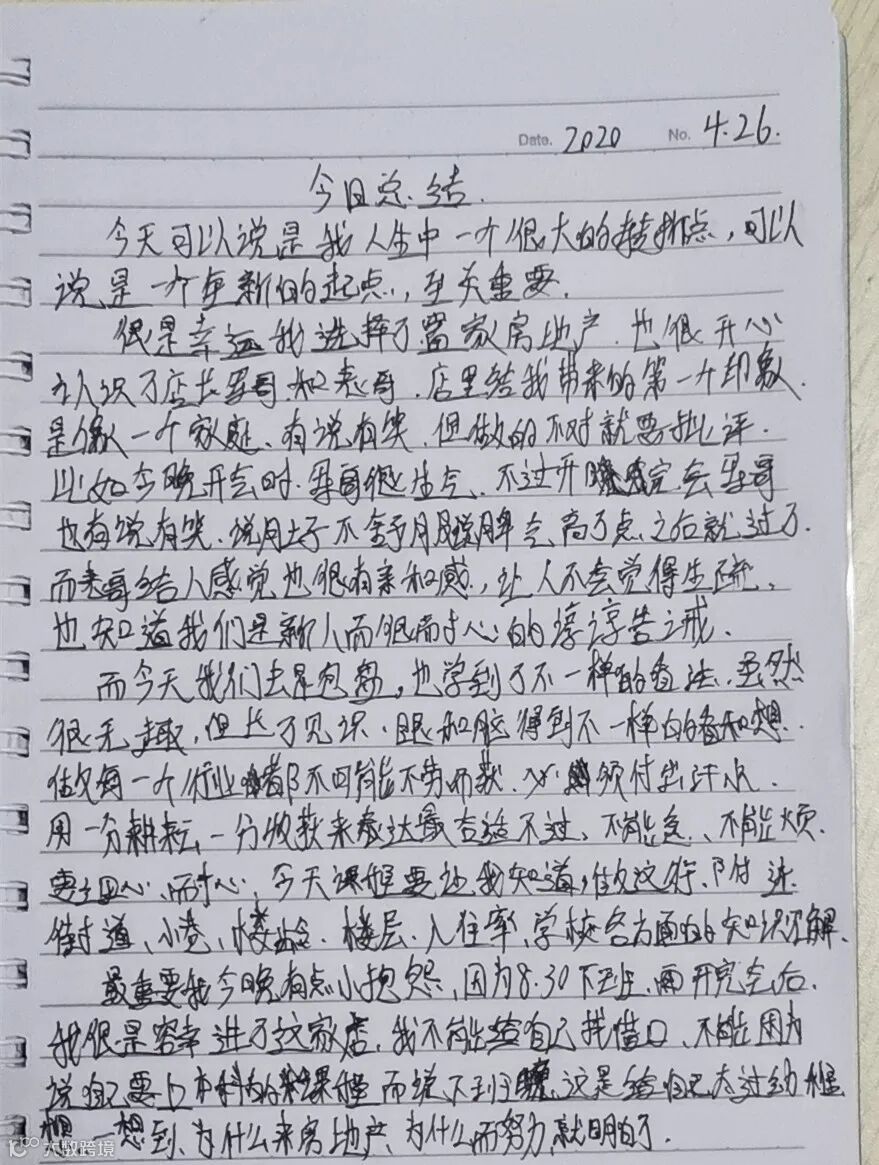 Date. 2020 No. 4.26.
今日总结.
今天可以说是我人生中一个很大的转折点，可以
说是一个重新的起点，至关重要.
很是幸运我选择了置家房地产.也很开心
认识了店长军哥.和老哥.店里给我带来的第一个印象.
是像一个家庭、有说有笑.但做的不对就要批评.
比如今晚开会时.军哥很生气、不过开完会军哥
也有说有笑.说肚子不舒服脾气高了点、之后就过了.
而老哥给人感觉也很有亲和感，让人不会觉得生疏、
也知道我们是新人而很耐心的谆谆告戒、
而今天我们去是包盘，也学到了不一样的看法.虽然
很无趣，但长了见识.眼和脑得到不一样的看和想.
做每一个行业都不可能不劳而获、必须付出汗水.
用一分耕耘一分收获来表达最合适不过、不能急、不能烦.
要细心、而耐心、今天课程要让我知道，做这行.附近
街道、小巷、楼龄.楼层.入住率、学校各方面的知识了解.
最重要我今晚有点小抱怨、因为8.30下班、而开完会后.
我很是荣幸进了这家店、我不能给自己找借口、不能因为
说自己要上本科的课程而说下到了晚、这是给自己太过幼稚
想一想到、为什么来房地产、为什么而努力就明白了.
大数跨境